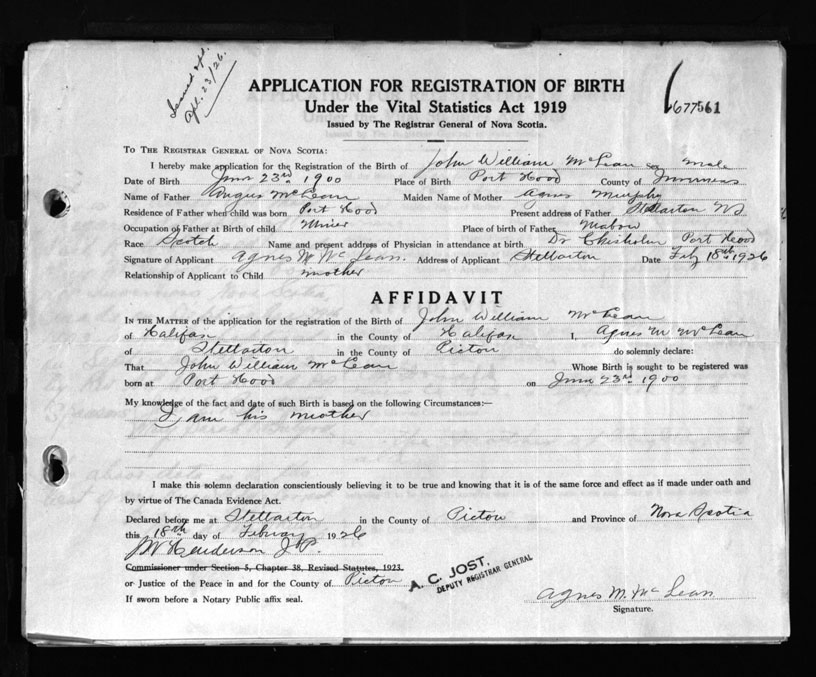 Issued apl.
Apl. 23/26.
APPLICATION FOR REGISTRATION OF BIRTH
Under the Vital Statistics Act 1919
Issued by The Registrar General of Nova Scotia.
677561
TO THE REGISTRAR GENERAL OF NOVA SCOTIA:
I hereby make application for the Registration of the Birth of John William McLean Sex Male
Date of Birth 23rd 1900 Place of Birth Port Hood County of Inverness
Name of Father Angus McLean Maiden Name of Mother Agnes Murphy
Residence of Father when child was born Port Hood Present address of Father Stellarton NS
Occupation of Father at Birth of child Miner Place of birth of Father Mabou
Race Scotch Name and present address of Physician in attendance at birth Dr Chisholm Port Hood
Signature of Applicant Agnes M McLean. Address of Applicant Stellarton Date Feb 18th 1926
Relationship of Applicant to Child mother
AFFIDAVIT
IN THE MATTER of the application for the registration of the Birth of John William McLean
of Halifax in the County of Halifax I, Agnes M McLean
of Stellarton in the County of Pictou do solemnly declare:
That John William McLean Whose Birth is sought to be registered was
born at Port Hood on 23rd 1900
My knowledge of the fact and date of such Birth is based on the following Circumstances:—
I am his mother
I make this solemn declaration conscientiously believing it to be true and knowing that it is of the same force and effect as if made under oath and
by virtue of The Canada Evidence Act.
Declared before me at Stellarton in the County of Pictou and Province of Nova Scotia
this 18th day of Febuary 1926
Henderson J.P.
Commissioner under Section 5, Chapter 38, Revised Statutes, 1923.
or Justice of the Peace in and for the County of Pictou
A. C. JOST,
DEPUTY REGISTRAR GENERAL
If sworn before a Notary Public affix seal.
Agnes M. McLean
Signature.